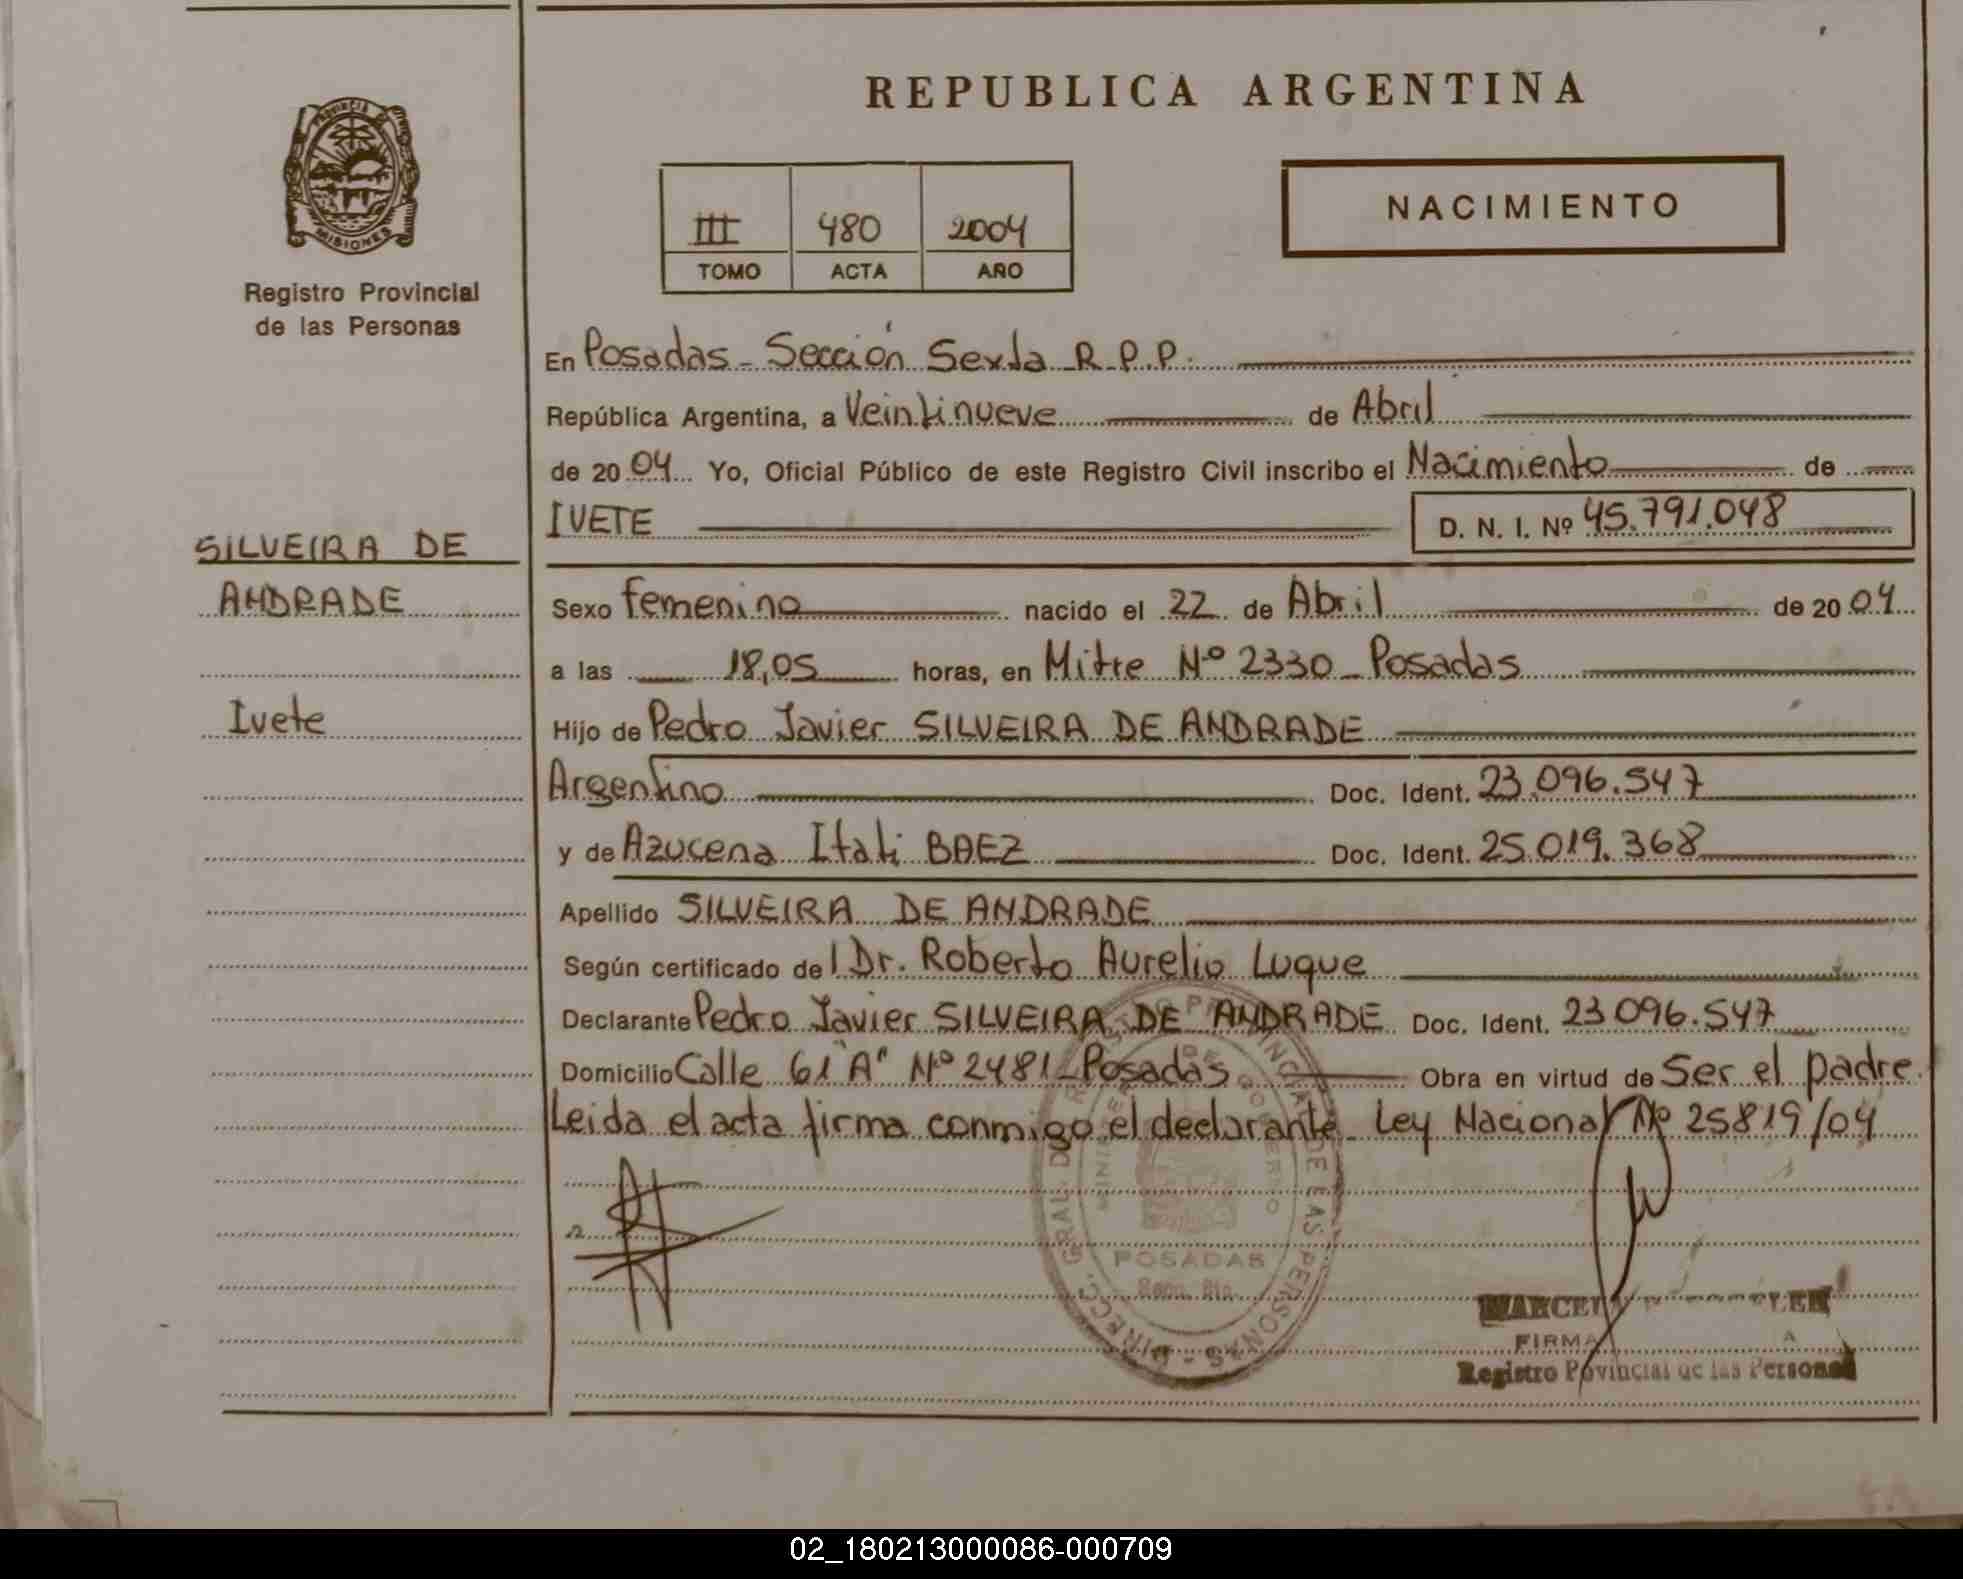 REPUBLICA ARGENTINA
PROVINCIA DE
MISIONES
Registro Provincial
de las Personas
III 480 2004
TOMO ACTA AÑO
NACIMIENTO
En Posadas - Sección Sexta R.P.P.
República Argentina, a Veintinueve de Abril
de 2004 Yo, Oficial Público de este Registro Civil inscribo el Nacimiento de
IVETE D. N. I. Nº 45.791.048
SILVEIRA DE
ANDRADE
Ivete
Sexo femenino nacido el 22 de Abril de 2004
a las 18,05 horas, en Mitre Nº 2330 - Posadas
Hijo de Pedro Javier SILVEIRA DE ANDRADE
Argentino Doc. Ident. 23.096.547
y de Azucena Itati BAEZ Doc. Ident. 25.019.368
Apellido SILVEIRA DE ANDRADE
Según certificado del Dr. Roberto Aurelio Luque
Declarante Pedro Javier SILVEIRA DE ANDRADE Doc. Ident. 23.096.547
Domicilio Calle 61 "A" Nº 2481 - Posadas Obra en virtud de Ser el padre.
Leida el acta firma conmigo el declarante - Ley Nacional Nº 25819/04
DIRECC. GRAL. DE REGISTRO PROVINCIAL DE LAS PERSONAS
MINISTERIO DE GOBIERNO
POSADAS
FIRMA
Registro Provincial de las Personas
02_180213000086-000709